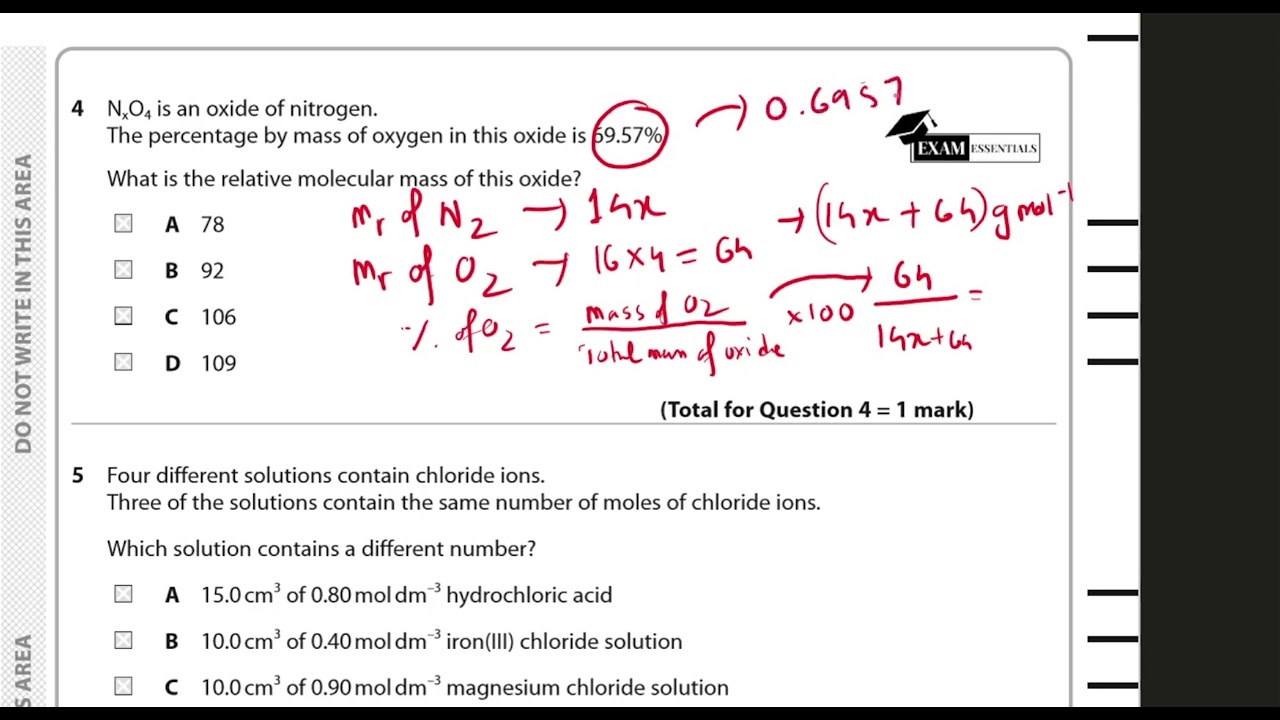 DO NOT WRITE IN THIS AREA
S AREA
4 NₓO₄ is an oxide of nitrogen.
The percentage by mass of oxygen in this oxide is 69.57% → 0.6957
EXAM ESSENTIALS
What is the relative molecular mass of this oxide?
A 78
B 92
C 106
D 109
Mr of N₂ → 14x → (14x + 64) g mol⁻¹
Mr of O₂ → 16 × 4 = 64
% of O₂ = mass of O₂ / Total mass of oxide × 100 → 64 / 14x + 64 =
(Total for Question 4 = 1 mark)
5 Four different solutions contain chloride ions.
Three of the solutions contain the same number of moles of chloride ions.
Which solution contains a different number?
A 15.0 cm³ of 0.80 mol dm⁻³ hydrochloric acid
B 10.0 cm³ of 0.40 mol dm⁻³ iron(III) chloride solution
C 10.0 cm³ of 0.90 mol dm⁻³ magnesium chloride solution